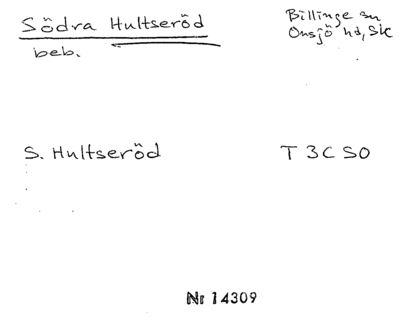 Södra Hultseröd
beb.
Billinge sn
Onsjö hd, Sk
S. Hultseröd
T 3C SO
Nr 14309